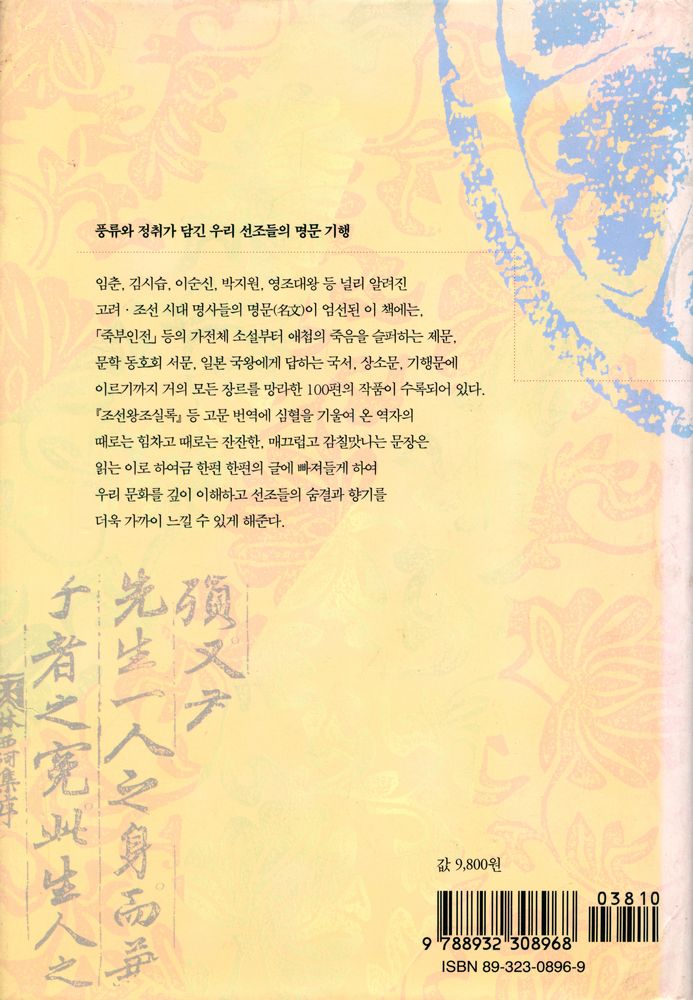 풍류와 정취가 담긴 우리 선조들의 명문 기행
임춘, 김시습, 이순신, 박지원, 영조대왕 등 널리 알려진
고려 · 조선 시대 명사들의 명문(名文)이 엄선된 이 책에는,
「죽부인전」 등의 가전체 소설부터 애첩의 죽음을 슬퍼하는 제문,
문학 동호회 서문, 일본 국왕에게 답하는 국서, 상소문, 기행문에
이르기까지 거의 모든 장르를 망라한 100편의 작품이 수록되어 있다.
『조선왕조실록』 등 고문 번역에 심혈을 기울여 온 역자의
때로는 힘차고 때로는 잔잔한, 매끄럽고 감칠맛나는 문장은
읽는 이로 하여금 한편 한편의 글에 빠져들게 하여
우리 문화를 깊이 이해하고 선조들의 숨결과 향기를
더욱 가까이 느낄 수 있게 해준다.
又
先生一人之身而
者之冤此生人之
林西河集序
값 9,800원
03810
9 788932 308968
ISBN 89-323-0896-9